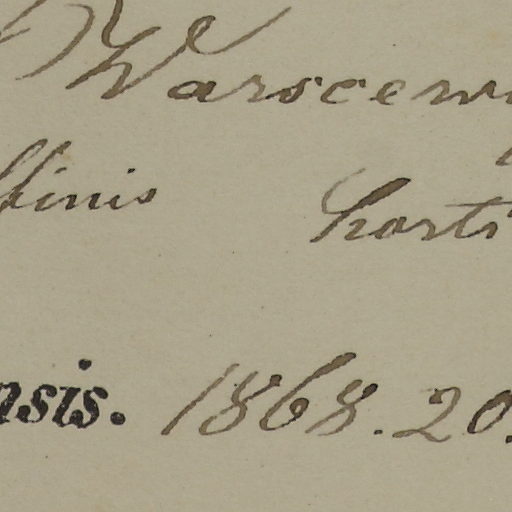 Warscew
ffinis horti
nsis. 1868. 20.